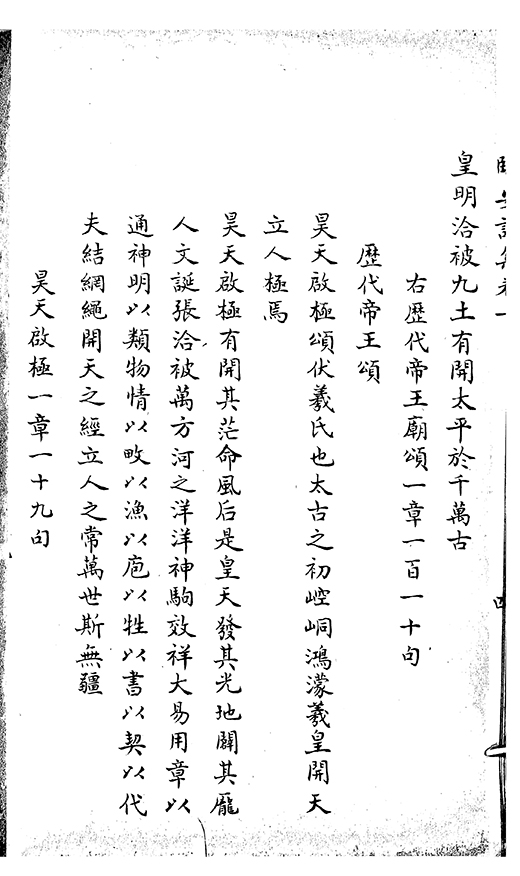 臨安詩集卷一
皇明洽被九土有開太平於千萬古
右歷代帝王廟頌一章一百一十句
歷代帝王頌
昊天啟極頌伏羲氏也太古之初崆峒鴻濛羲皇開天
立人極焉
昊天啟極有開其茫命風后是皇天發其光地闢其厖
人文誕張洽被萬方河之洋洋神駒效祥大易用章以
通神明以類物情以畋以漁以庖以牲以書以契以代
夫結網繩開天之經立人之常萬世斯無疆
昊天啟極一章一十九句
四